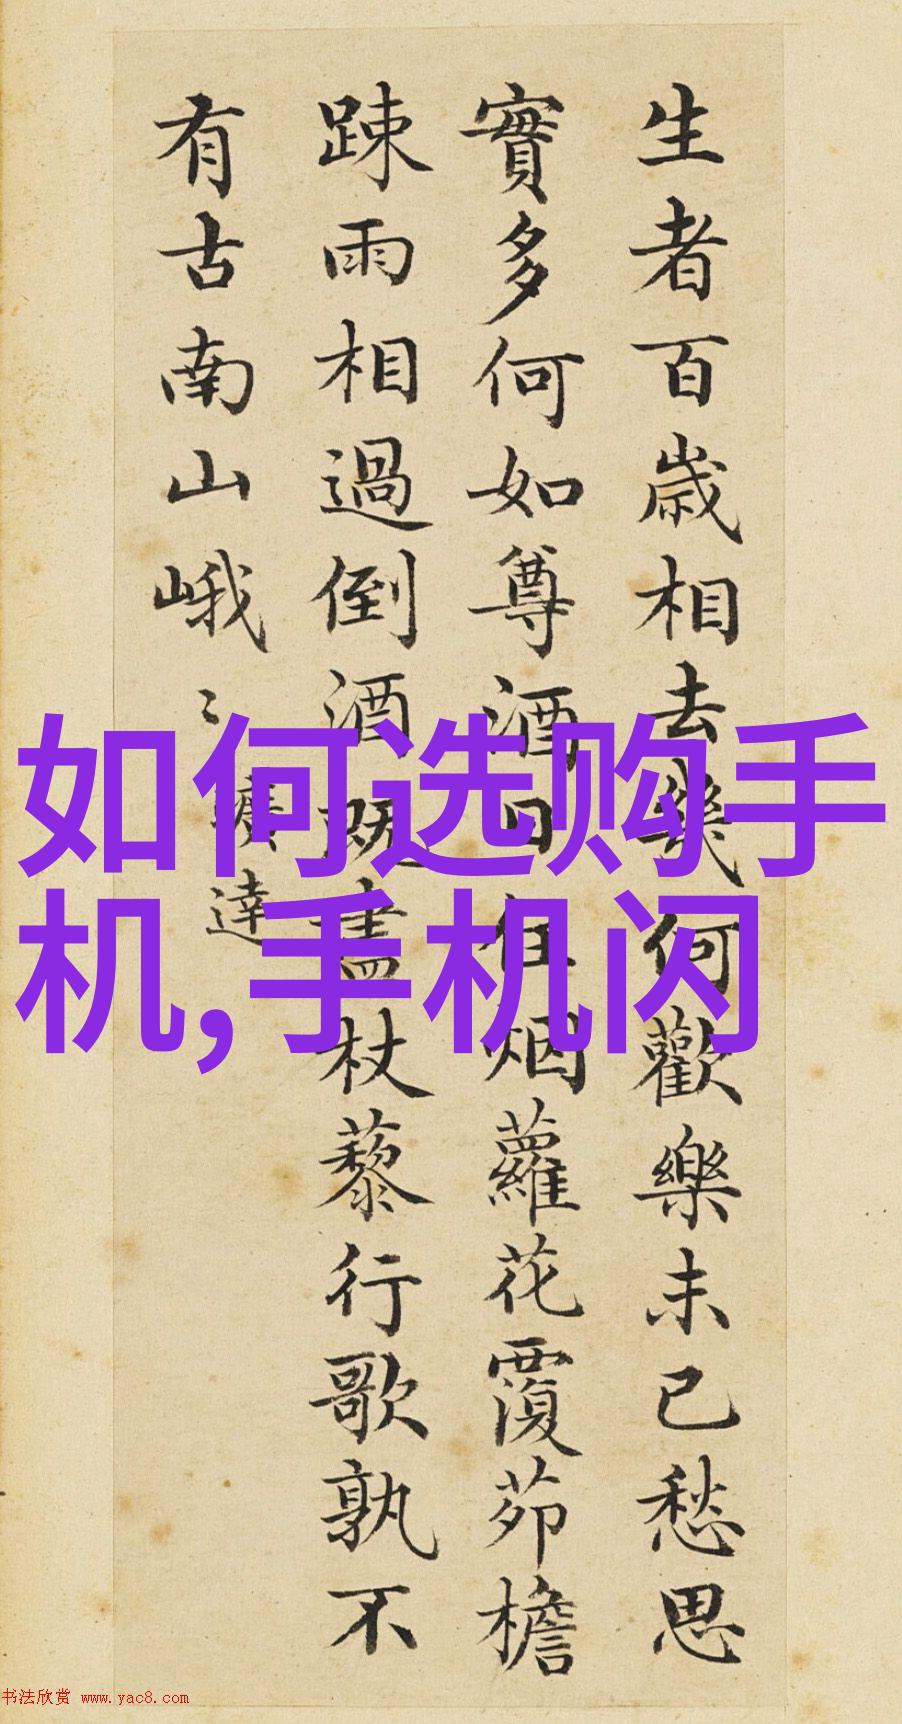 生者百歲相去幾何歡樂未已愁思
實多何如尊酒日往烟蘿花覆茆檐
踈雨相過倒酒既盡杖藜行歌孰不
有古南山峨〻
曠達
如何选购手
机,手机闪
书法欣赏 www.yac8.com